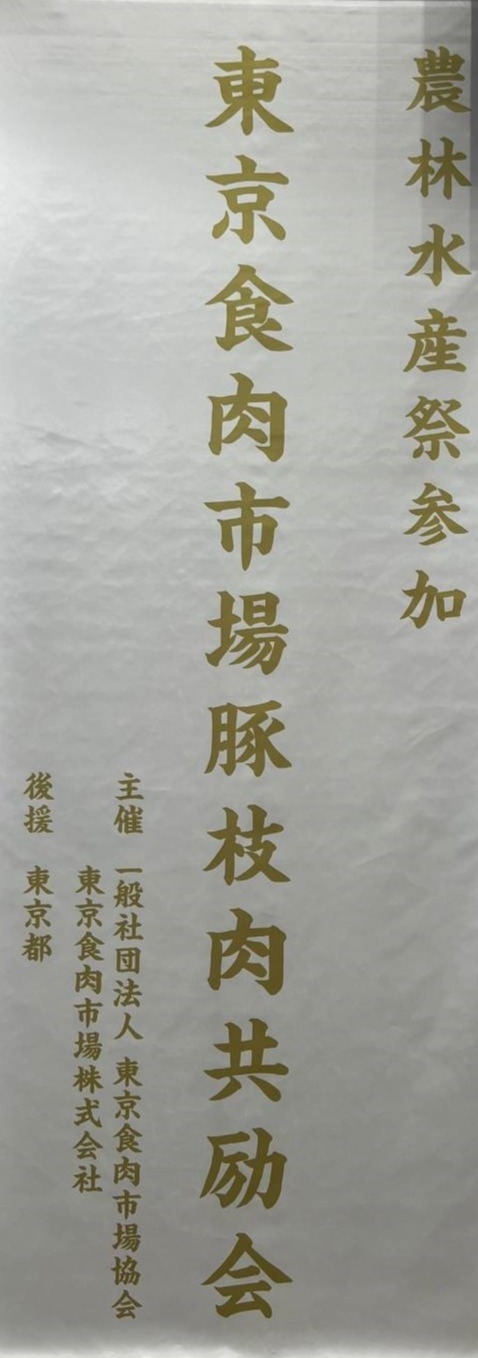 農林水産祭参加
東京食肉市場豚枝肉共励会
主催 一般社団法人 東京食肉市場協会
東京食肉市場株式会社
後援 東京都